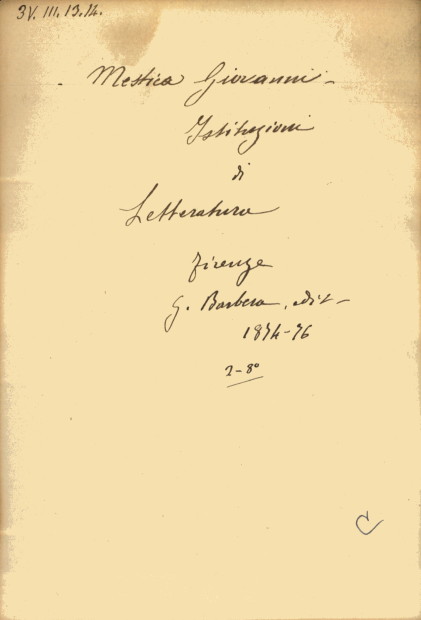 3V. III. 13. 14.
Mestica Giovanni -
Istituzioni
di
Letteratura
Firenze
G. Barbera, edit -
1874-76
2-8º
C